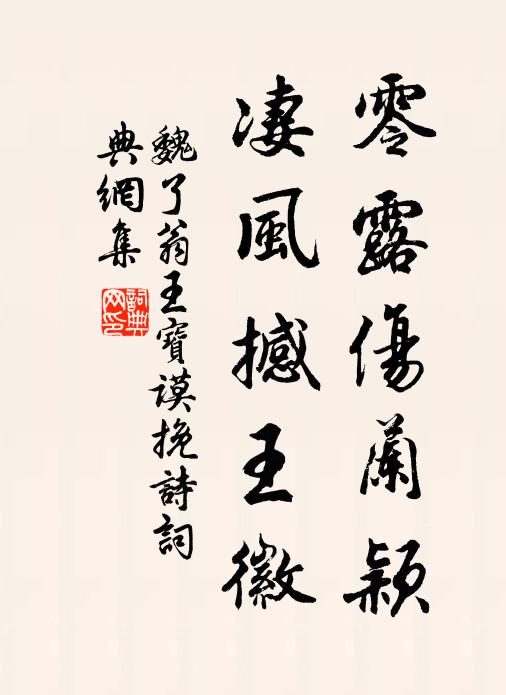 零露傷蘭穎
凄風撼王徽
魏了翁王寶謨挽詩詞
典網集
詞典
网印